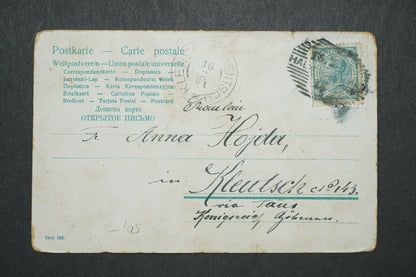 Postkarte — Carte postale
Weltpostverein — Union postale universelle
Correspondenzkarte — Dopisnice
Levelező-Lap — Korespondenční lístek
Dopisnica — Karta Korespondencyjna
Briefkaart — Cartolina Postale
Brefkort — Tarjeta Postal — Postcard
Дописна карта
ОТКРЫТОЕ ПИСЬМО
Fräulein
Anna Hojda,
in
Kleutsch No 143.
via Taus
Königreich Böhmen.
Serie